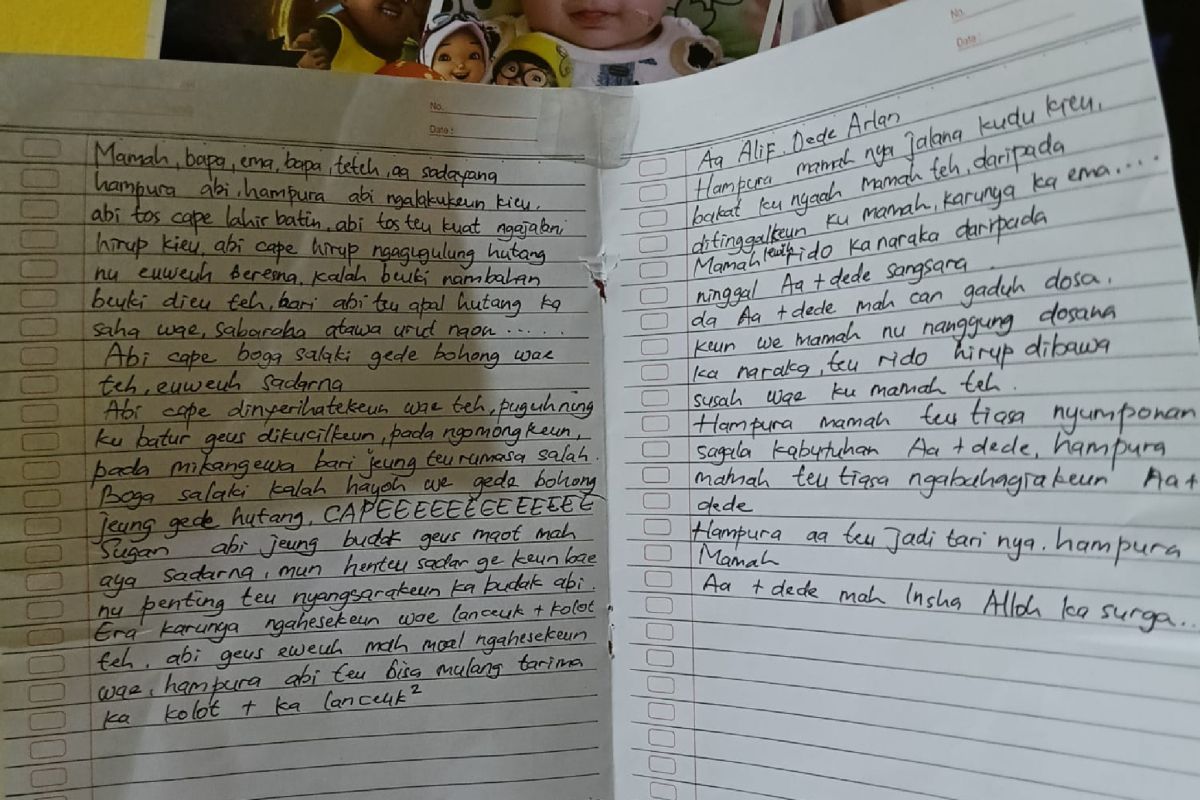 No.
Date :
Mamah, bapa, ema, bapa, teteh, aa sadayana
hampura abi, hampura abi ngalakukeun kieu.
abi tos cape lahir batin, abi tos teu kuat ngajalani
hirup kieu, abi cape hirup ngagugulung hutang
nu euweuh beresna, kalah beuki nambahan
beuki dieu teh, bari abi teu apal hutang ka
saha wae, sabaraha atawa urud naon ......
Abi cape boga salaki gede bohong wae
teh, euweuh sadarna
Abi cape dinyerihatekeun wae teh, puguhning
ku batur geus dikucilkeun, pada ngomongkeun,
pada mikangewa bari jeung teu rumasa salah.
Boga salaki kalah hayoh we gede bohong
jeung gede hutang, CAPEEEEEEEEEEEEEE
Sugan abi jeung budak geus maot mah
aya sadarna, mun henteu sadar ge keun bae
nu penting teu nyangsarakeun ka budak abi.
Era karunya ngahesekeun wae lanceuk + kolot
teh, abi geus eweuh mah moal ngahesekeun
wae, hampura abi teu bisa mulang tarima
ka kolot + ka lanceuk²
No.
Date :
Aa Alif, Dede Arlan
Hampura mamah nya jalana kudu kieu,
bakat ku nyaah mamah teh, daripada
ditinggalkeun ku mamah, karunya ka ema....
Mamah leuih rido ka naraka daripada
ninggal Aa + dede sangsara
da Aa + dede mah can gaduh dosa,
keun we mamah nu nanggung dosana
ka naraka, teu rido hirup dibawa
susah wae ku mamah teh.
Hampura mamah teu tiasa nyumponan
sagala kabutuhan Aa + dede, hampura
mamah teu tiasa ngabahagiakeun Aa +
dede
Hampura aa teu jadi tari nya. hampura
Mamah
Aa + dede mah Insha Alloh ka surga...